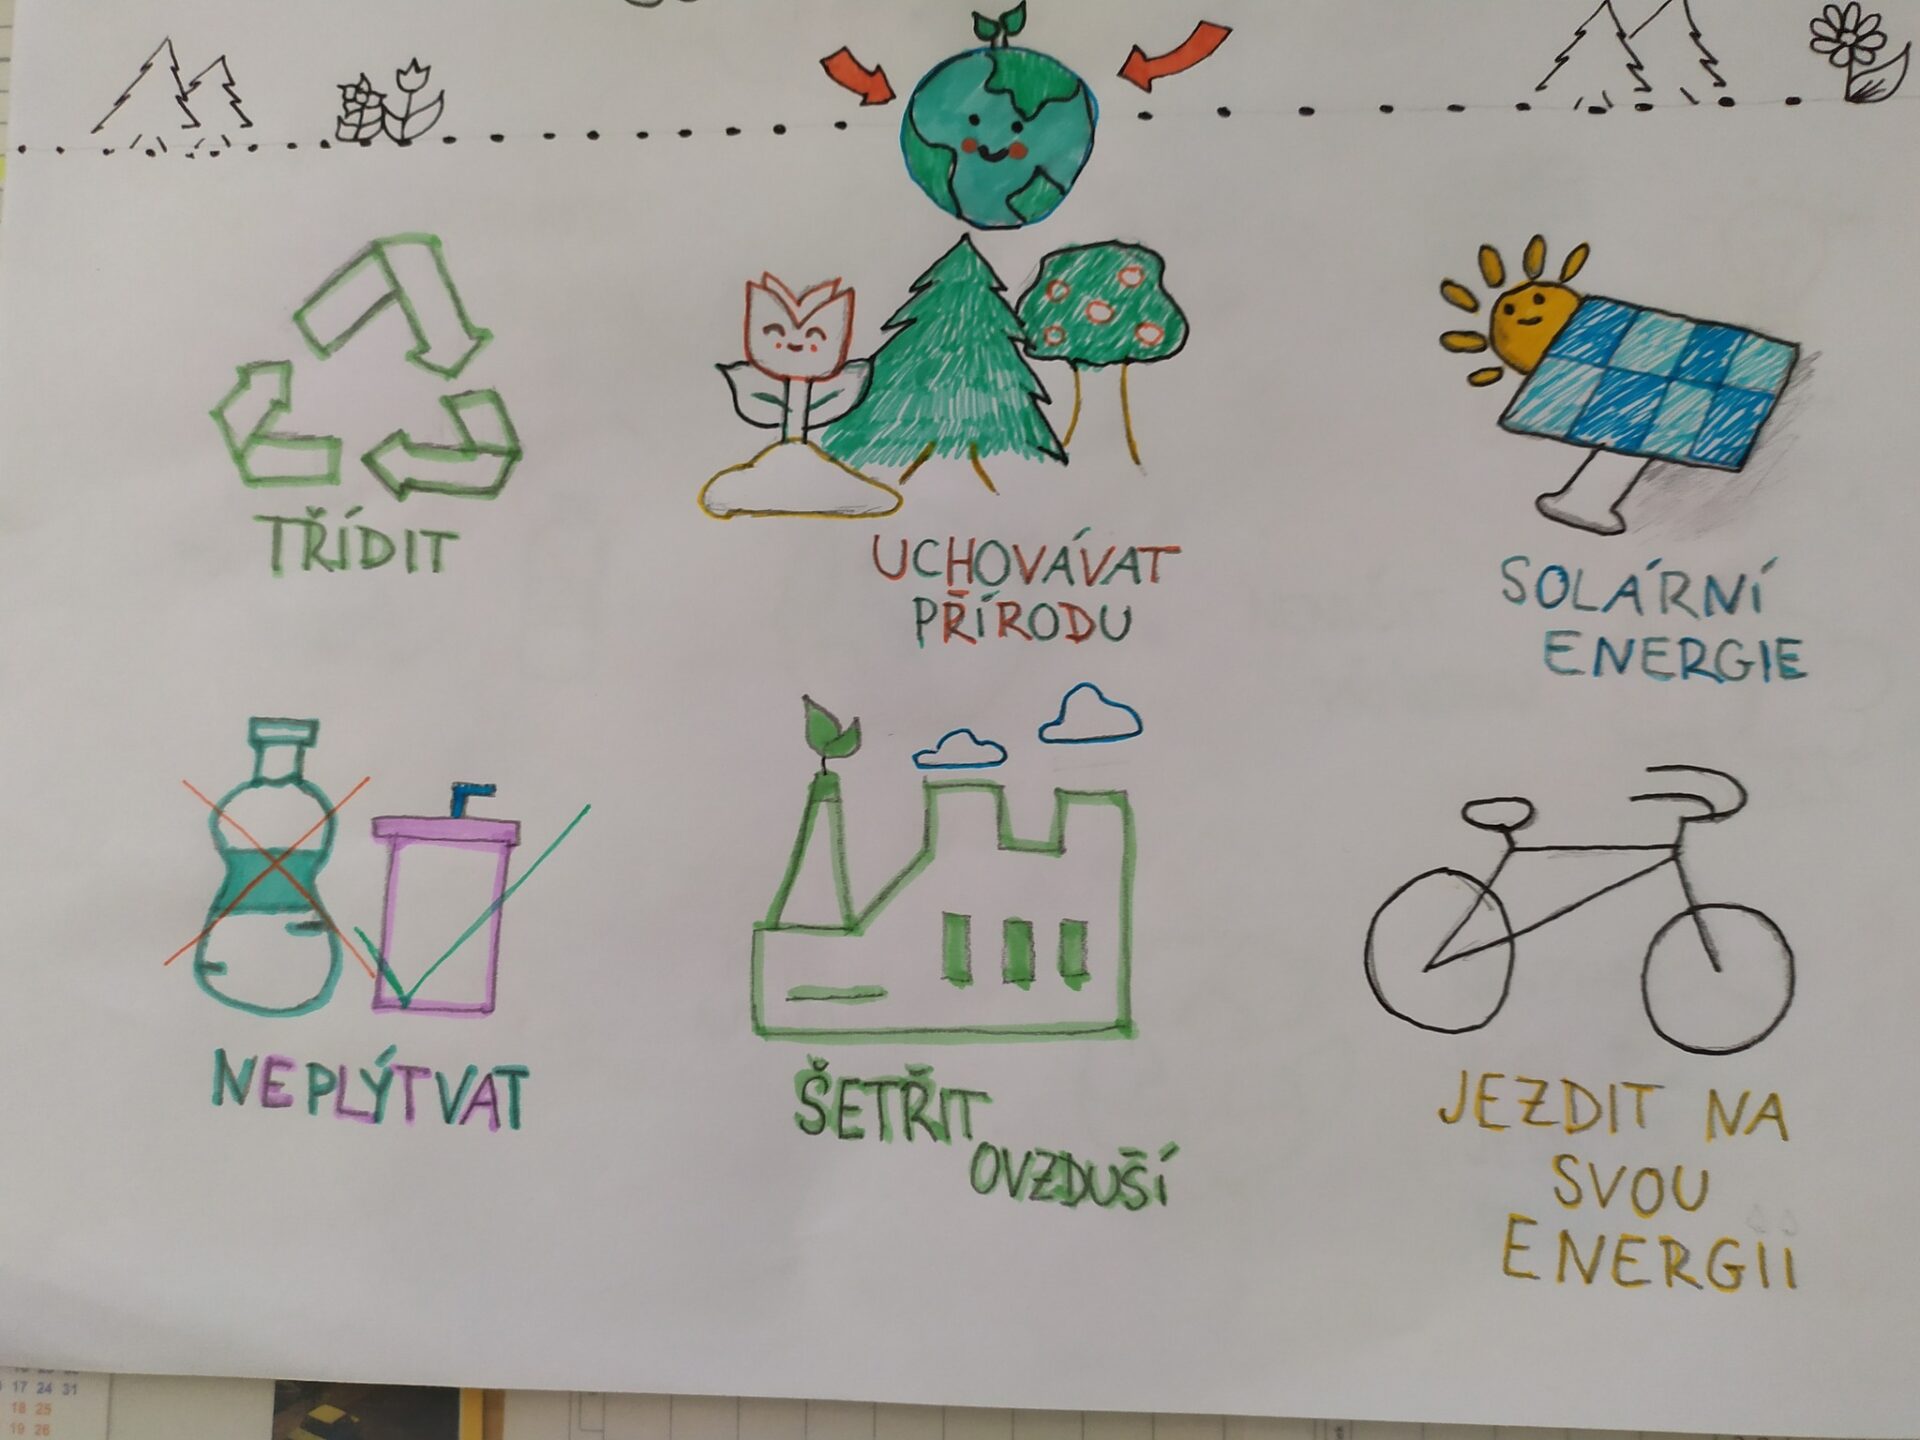 TŘÍDIT
UCHOVÁVAT
PŘÍRODU
SOLÁRNÍ
ENERGIE
NEPLÝTVAT
ŠETŘIT
OVZDUŠÍ
JEZDIT NA
SVOU
ENERGII
17 24 31
18 25
19 26